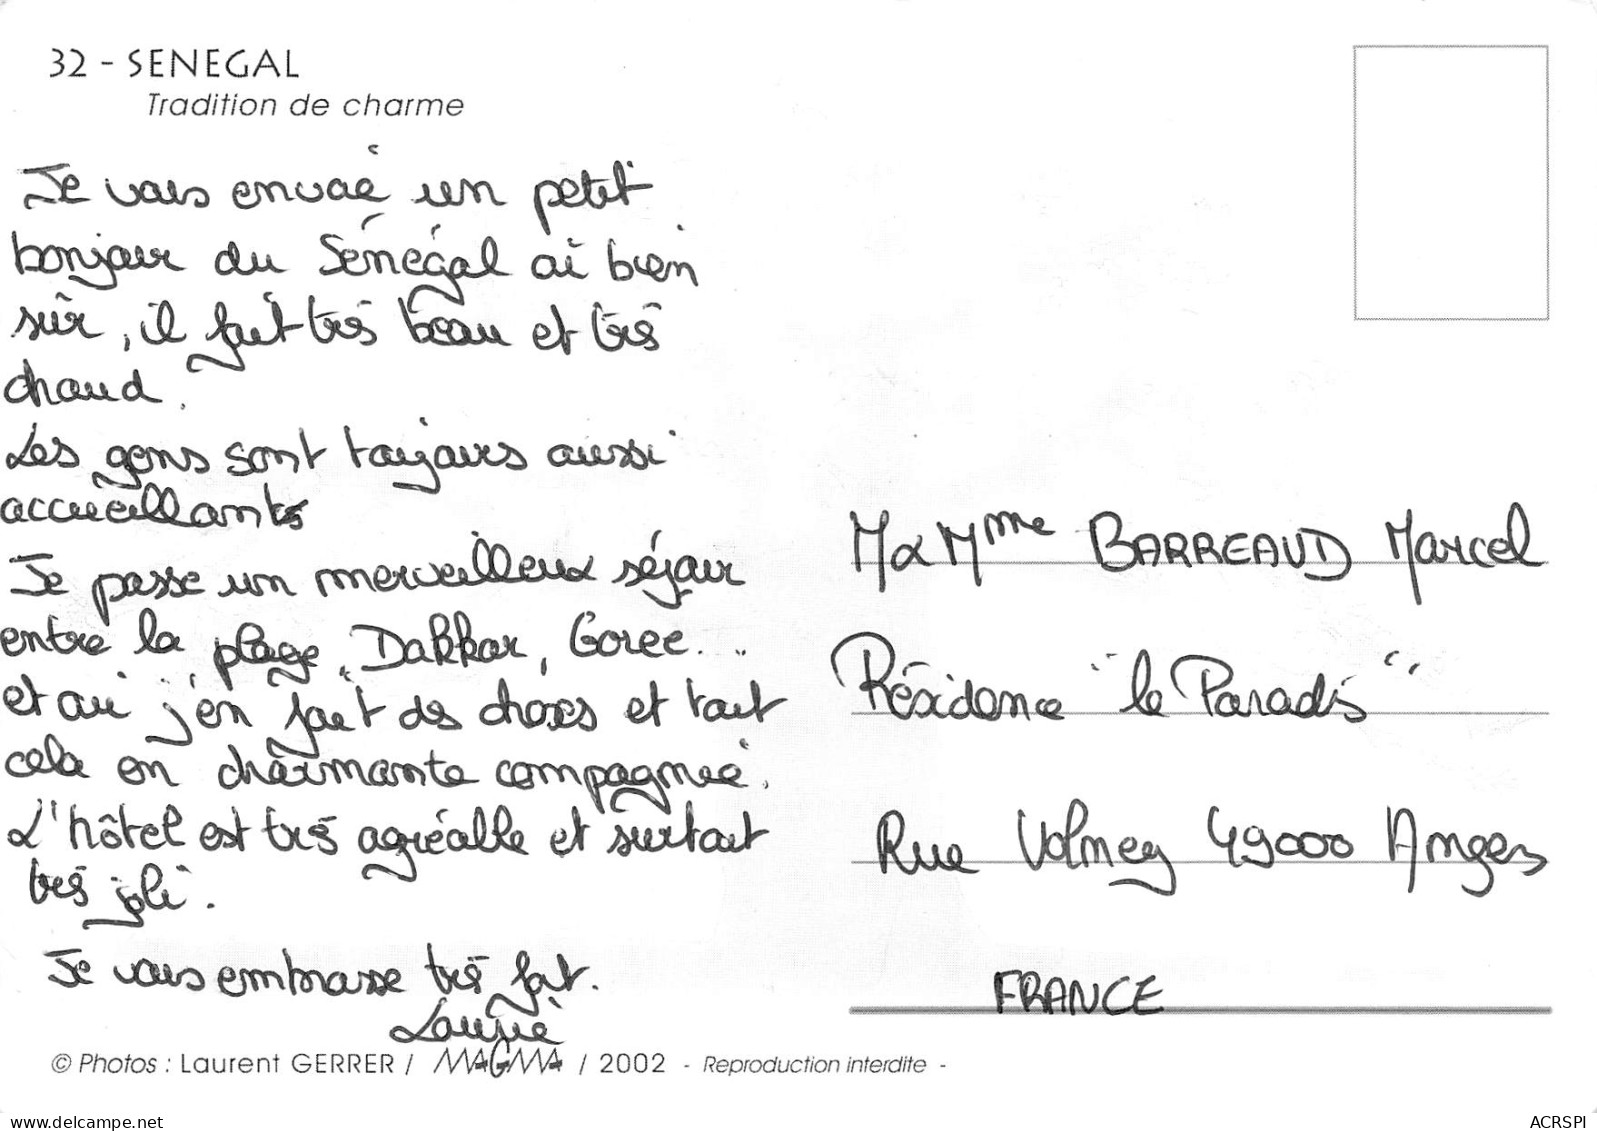 32 - SENEGAL
Tradition de charme
Je vous envoie un petit
bonjour du Sénégal où bien
sûr, il fait très beau et très
chaud.
Les gens sont toujours aussi
accueillants
Je passe un merveilleux séjour
entre la plage, Dakkar, Gorée...
et où j'en fait des choses et tout
cela en charmante compagnie.
L'hôtel est très agréable et surtout
très joli.
Je vous embrasse très fort.
M & Mme BARREAUD Marcel
Résidence "le Paradis"
Rue Volney 49000 Angers
FRANCE
© Photos : Laurent GERRER / MAGMA / 2002 - Reproduction interdite -
www.delcampe.net
ACRSPI